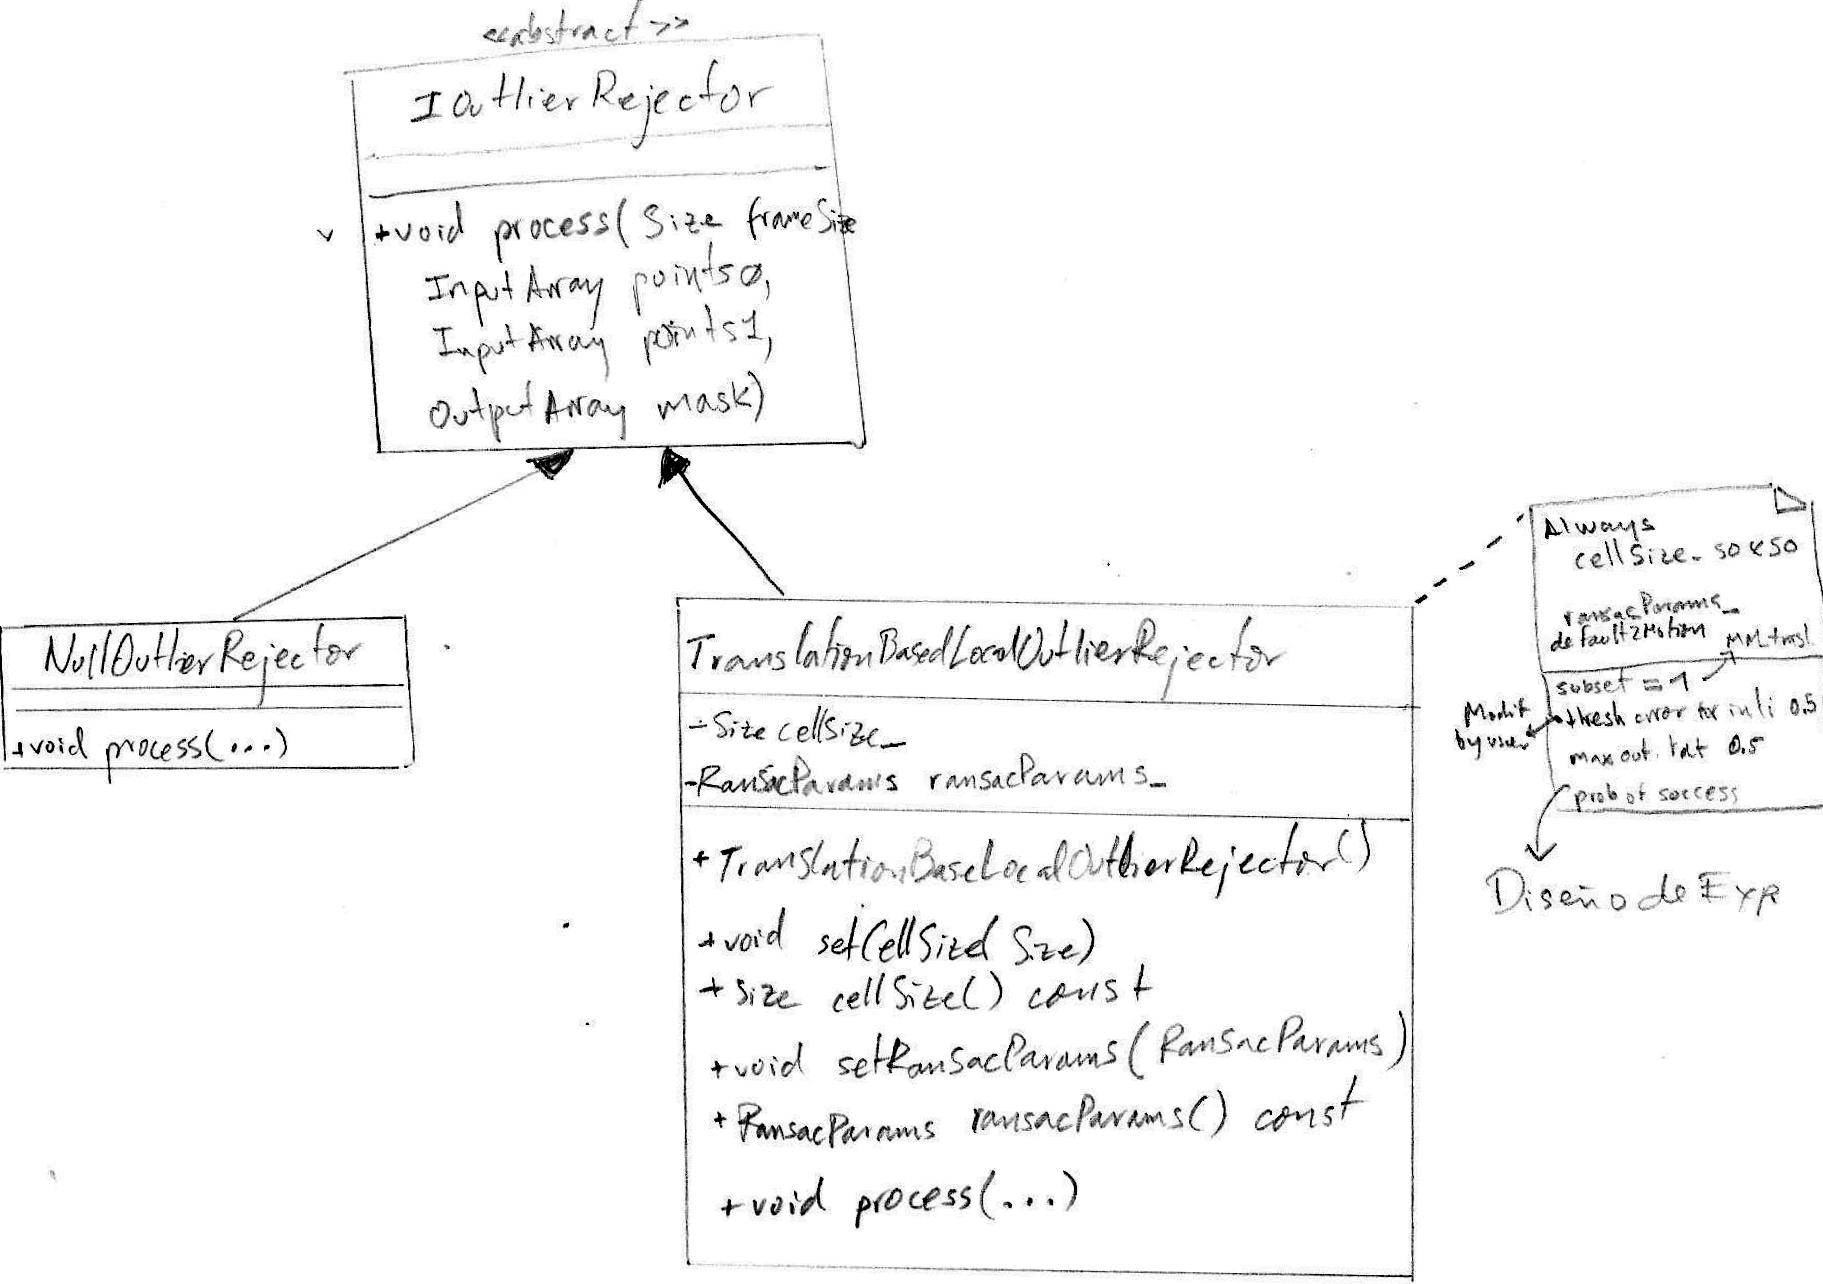 <<abstract>>
IOutlierRejector
+void process(Size frameSize
InputArray points0,
InputArray points1,
OutputArray mask)
NullOutlierRejector
+void process(...)
TranslationBasedLocalOutlierRejector
-Size cellSize_
-RansacParams ransacParams_
+TranslationBaseLocalOutlierRejector()
+void setCellSize(Size)
+Size cellSize() const
+void setRansacParams(RansacParams)
+RansacParams ransacParams() const
+void process(...)
Always
cellSize_ 50x50
ransacParams_
default2Motion
subset = 1
thresh error for inli 0.5
max out. rat 0.5
prob of success
Modif
by user
Diseño de Exp